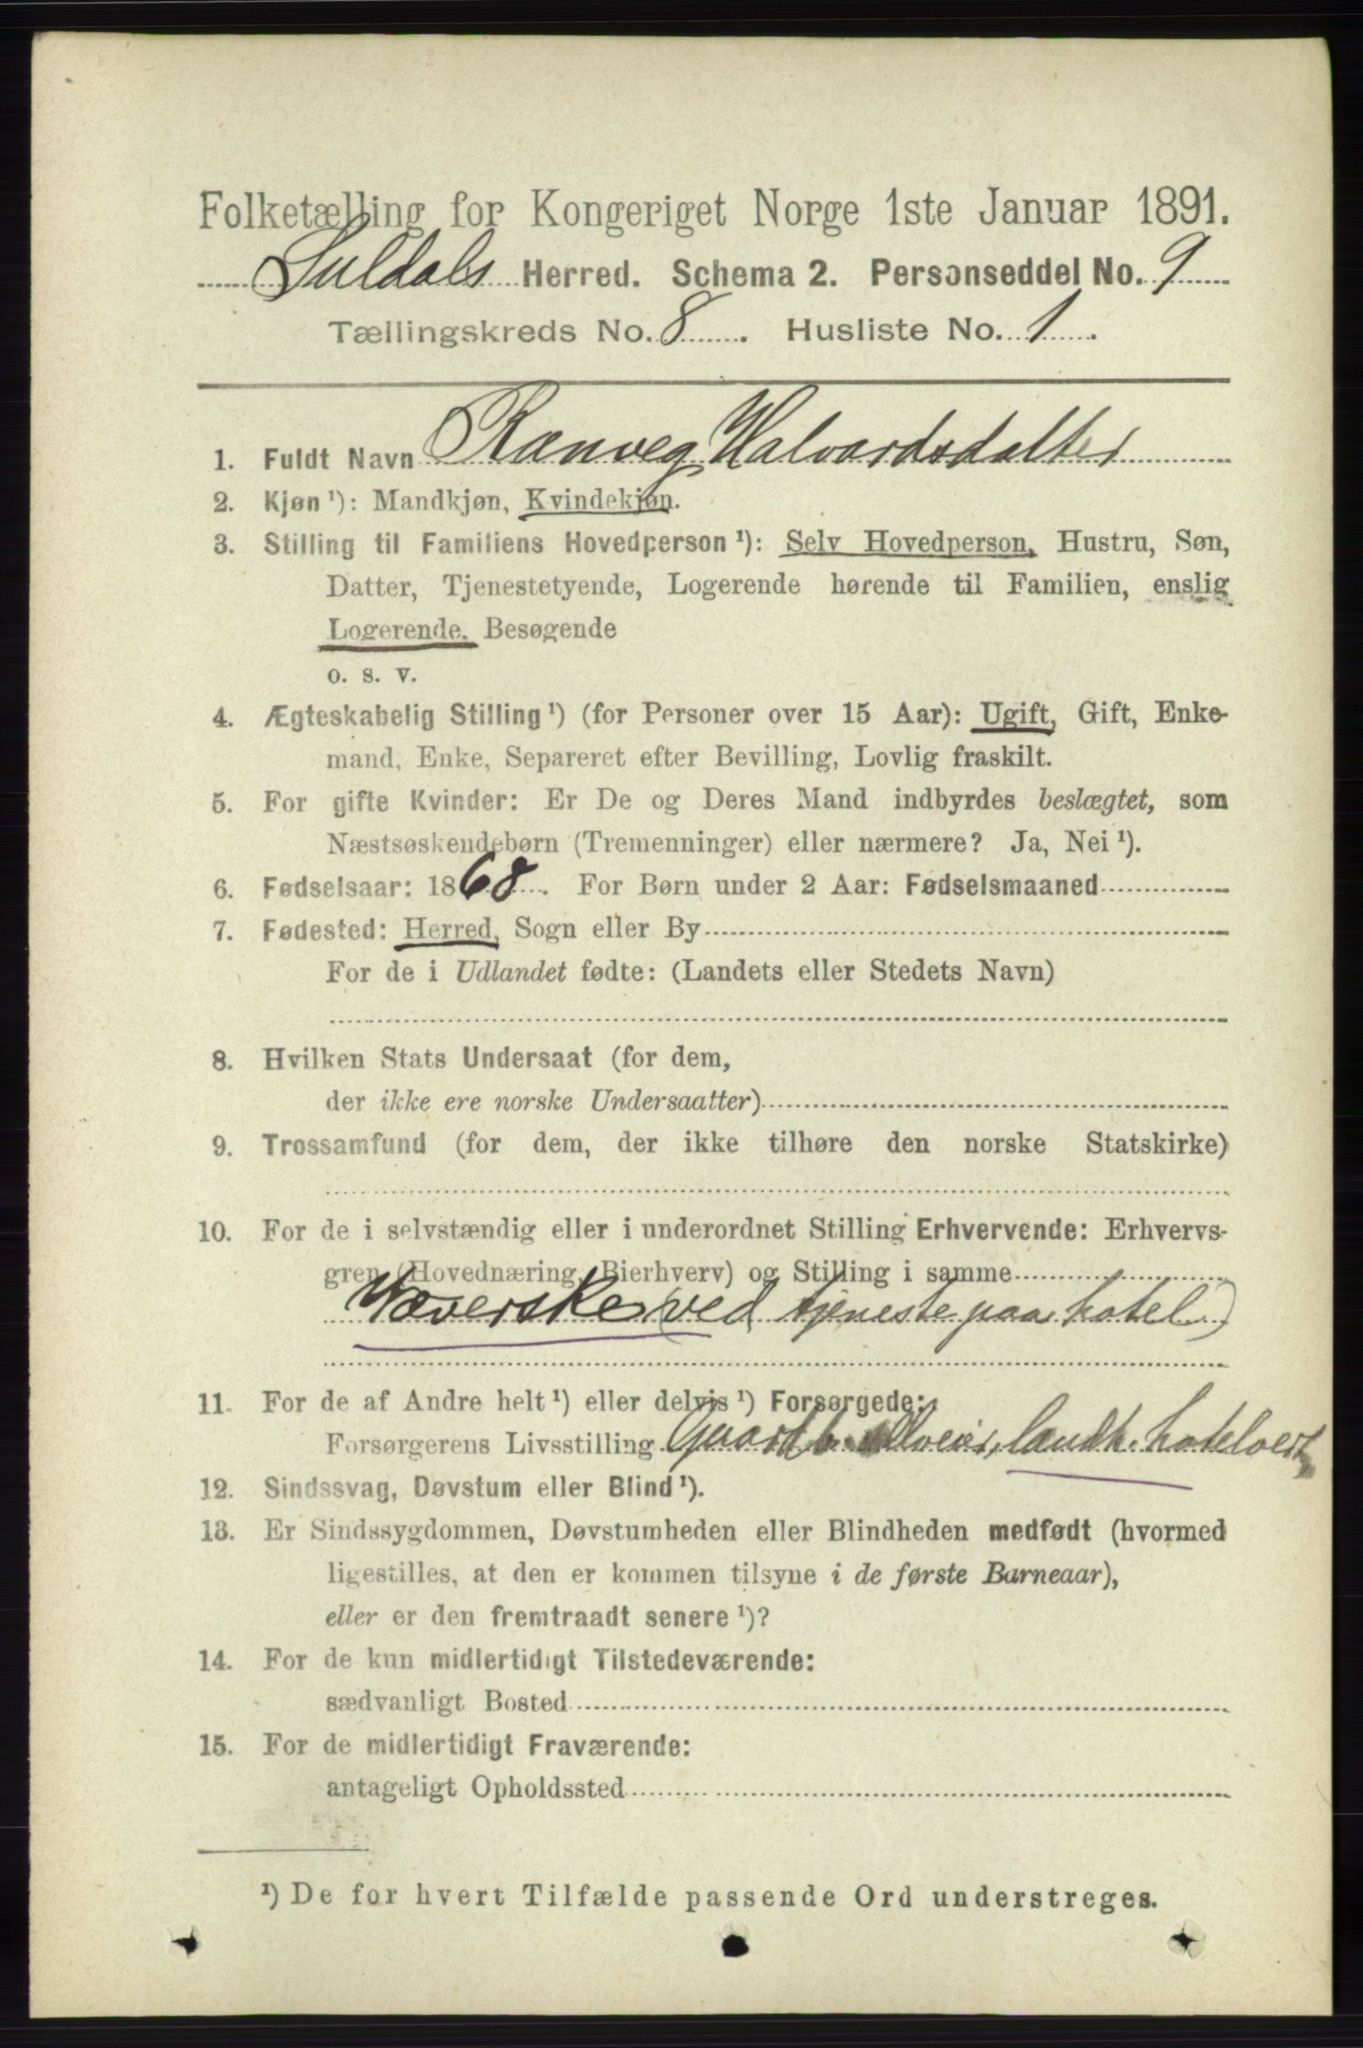 Folketælling for Kongeriget Norge 1ste Januar 1891.
Suldals Herred. Schema 2. Personseddel No. 9
Tællingskreds No. 8. Husliste No. 1.
1. Fuldt Navn Ranveg Halvardsdatter
2. Kjøn ¹): Mandkjøn, Kvindekjøn.
3. Stilling til Familiens Hovedperson ¹): Selv Hovedperson, Hustru, Søn,
Datter, Tjenestetyende, Logerende hørende til Familien, enslig
Logerende, Besøgende
o. s. v.
4. Ægteskabelig Stilling ¹) (for Personer over 15 Aar): Ugift, Gift, Enke-
mand, Enke, Separeret efter Bevilling, Lovlig fraskilt.
5. For gifte Kvinder: Er De og Deres Mand indbyrdes beslægtet, som
Næstsøskendebørn (Tremenninger) eller nærmere? Ja, Nei ¹).
6. Fødselsaar: 1868. For Børn under 2 Aar: Fødselsmaaned
7. Fødested: Herred, Sogn eller By
For de i Udlandet fødte: (Landets eller Stedets Navn)
8. Hvilken Stats Undersaat (for dem,
der ikke ere norske Undersaatter)
9. Trossamfund (for dem, der ikke tilhøre den norske Statskirke)
10. For de i selvstændig eller i underordnet Stilling Erhvervende: Erhvervs-
gren (Hovednæring, Bierhverv) og Stilling i samme
Væverske (ved tjeneste paa hotel)
11. For de af Andre helt ¹) eller delvis ¹) Forsørgede:
Forsørgerens Livsstilling landh. hotelvert
12. Sindssvag, Døvstum eller Blind ¹).
13. Er Sindssygdommen, Døvstumheden eller Blindheden medfødt (hvormed
ligestilles, at den er kommen tilsyne i de første Barneaar),
eller er den fremtraadt senere ¹)?
14. For de kun midlertidigt Tilstedeværende:
sædvanligt Bosted
15. For de midlertidigt Fraværende:
antageligt Opholdssted
¹) De for hvert Tilfælde passende Ord understreges.